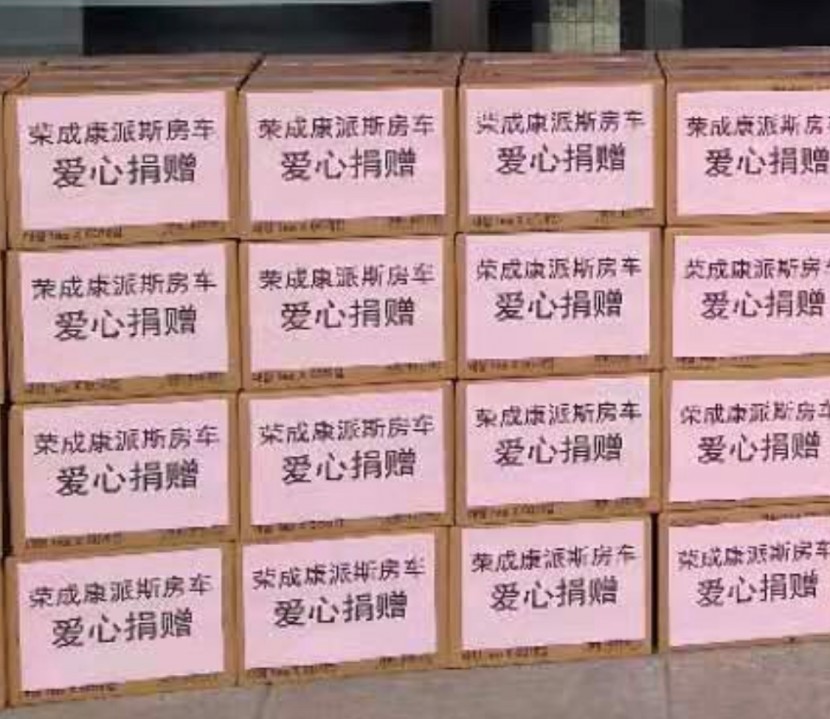 荣成康派斯房车
爱心捐赠
荣成康派斯房车
爱心捐赠
荣成康派斯房车
爱心捐赠
荣成康派斯房
爱心捐赠
荣成康派斯房车
爱心捐赠
荣成康派斯房车
爱心捐赠
荣成康派斯房车
爱心捐赠
荣成康派斯房
爱心捐赠
荣成康派斯房车
爱心捐赠
荣成康派斯房车
爱心捐赠
荣成康派斯房车
爱心捐赠
荣成康派斯房车
爱心捐赠
荣成康派斯房车
爱心捐赠
荣成康派斯房车
爱心捐赠
荣成康派斯房车
爱心捐赠
荣成康派斯房车
爱心捐赠